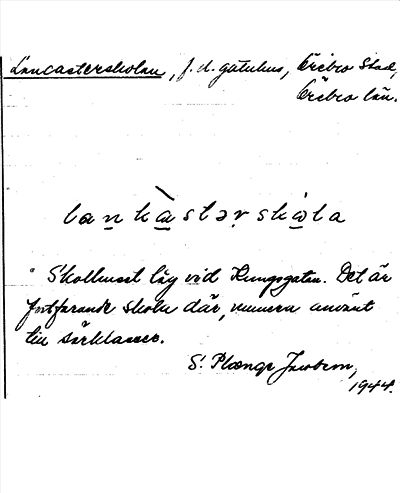 Lancasterskolan, f. d. gatuhus, Örebro stad,
Örebro län.
lankàstər skóla
Skolhuset låg vid Kungsgatan. Det är
fortfarande skola där, numera använt
till särklasser.
S. Plænge Jacobson,
1944.